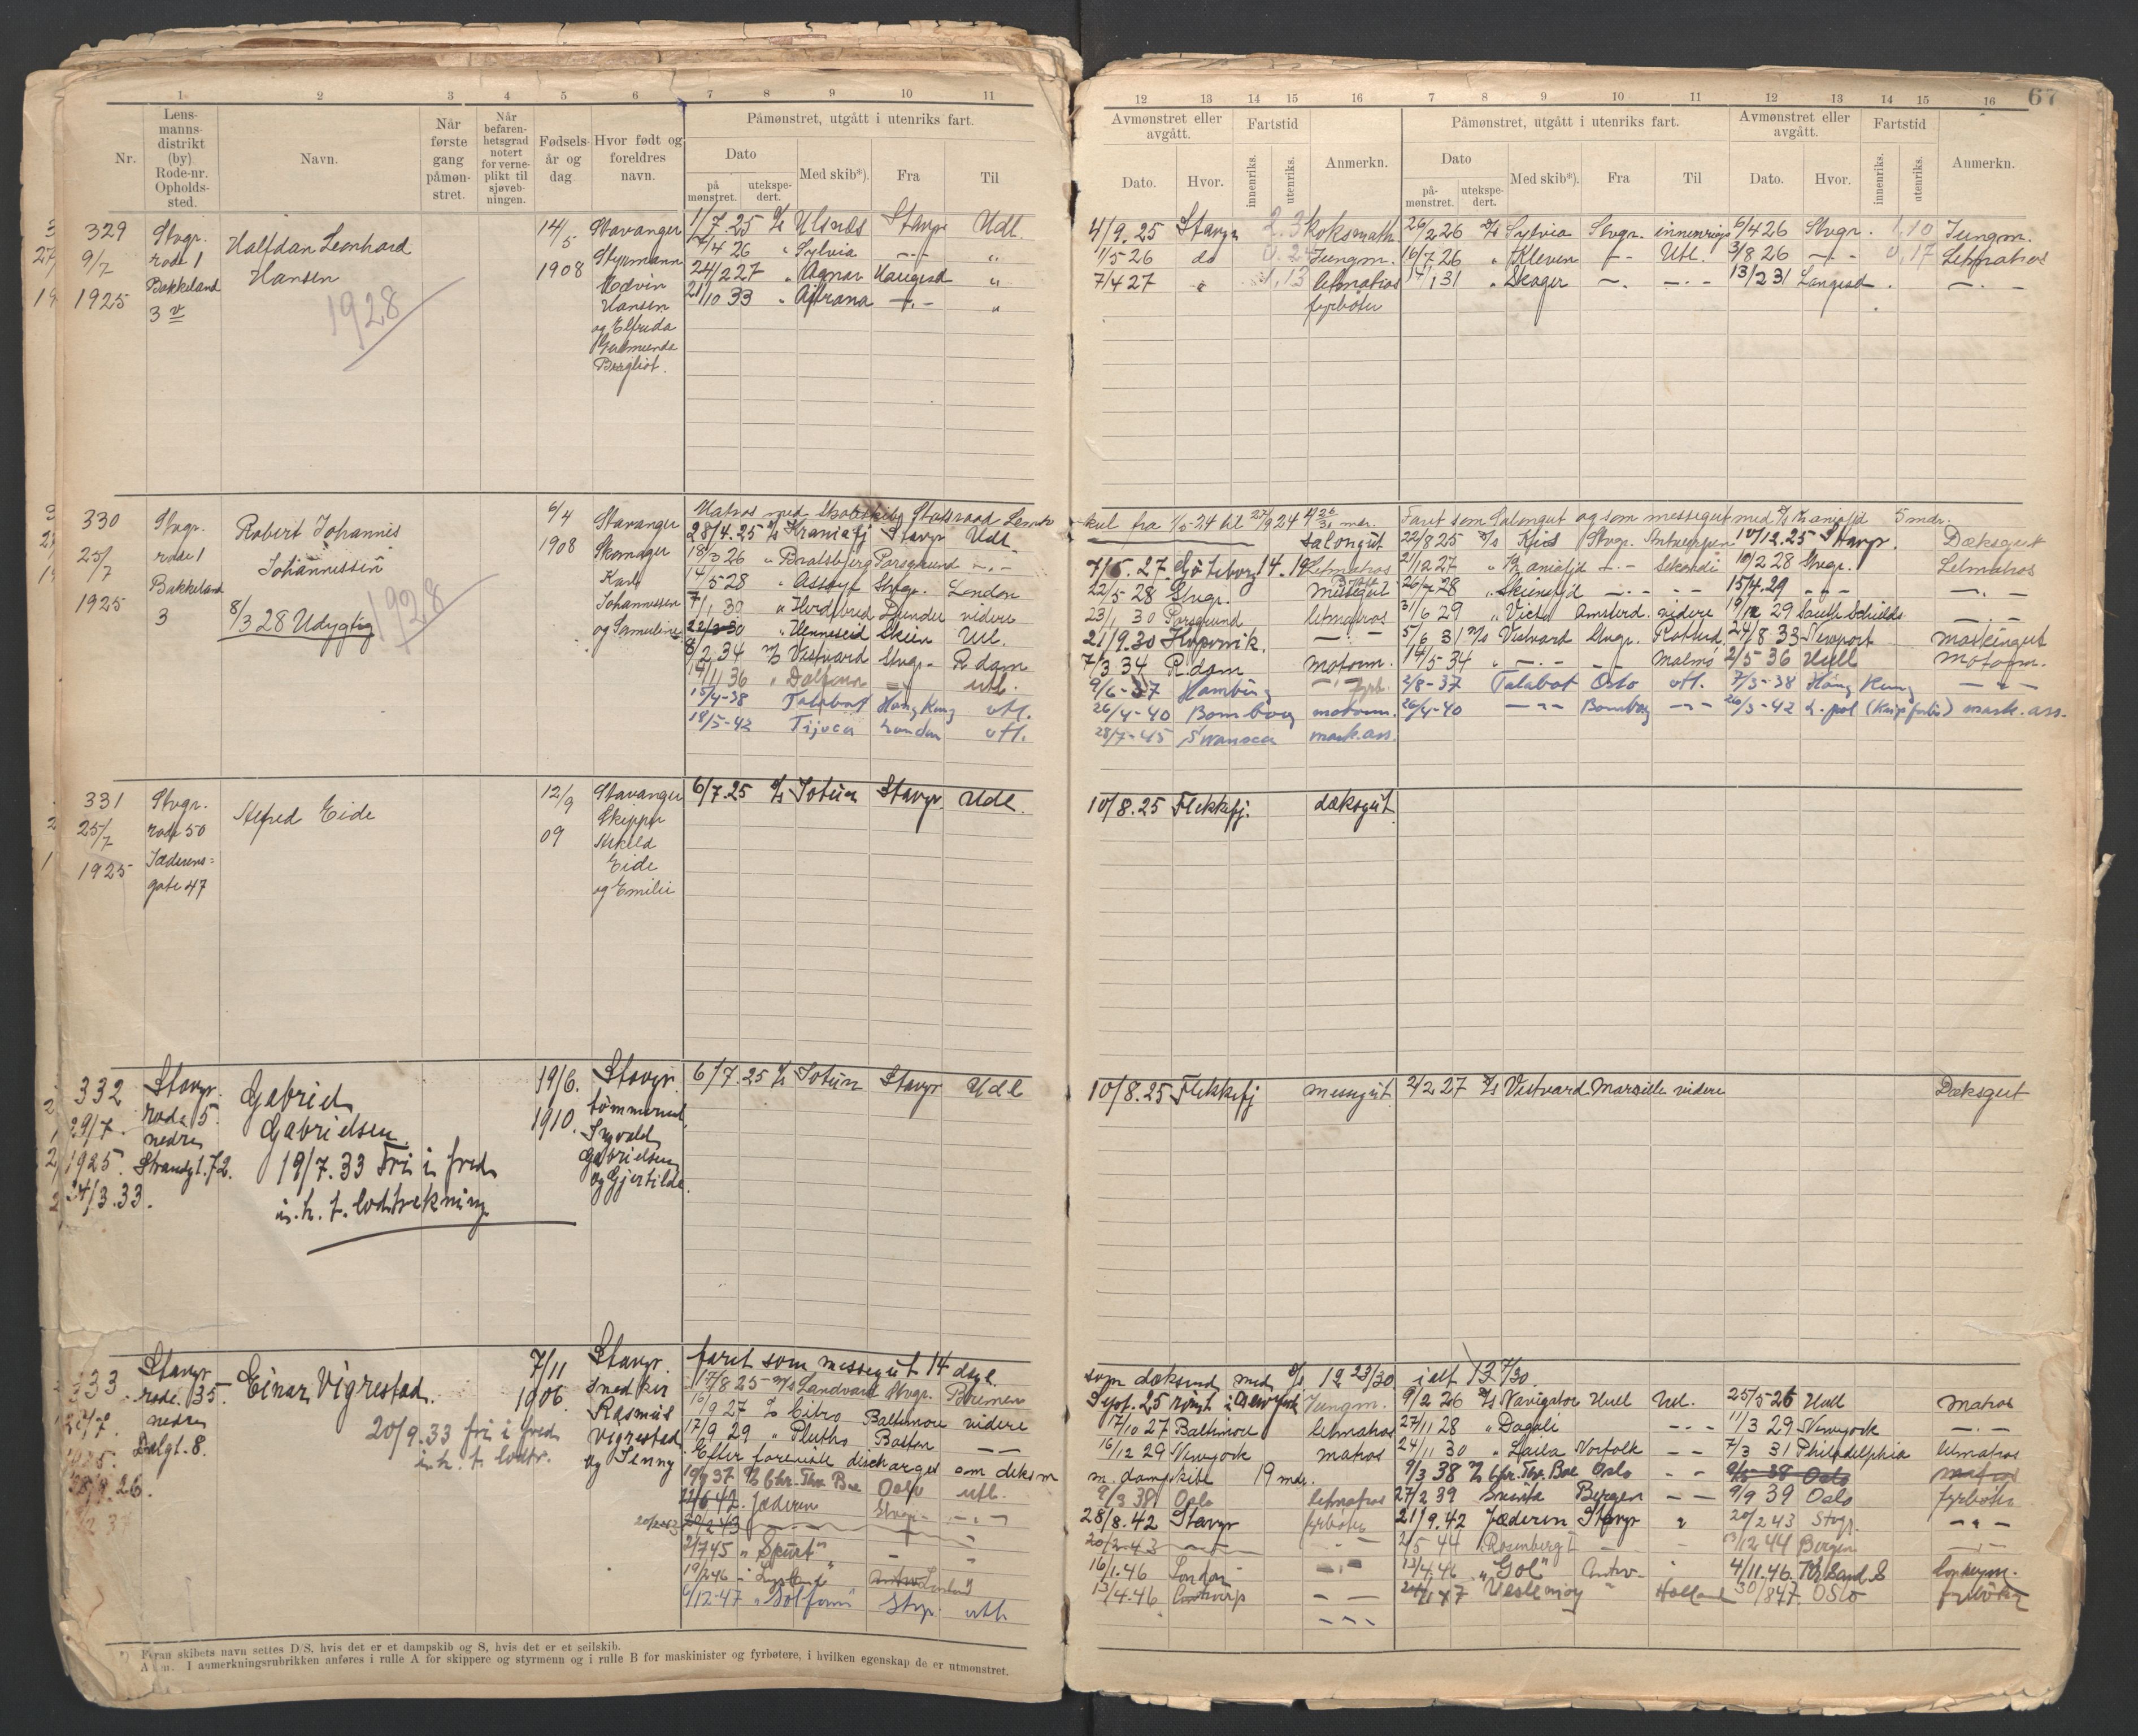 1 2 3 4 5 6 7 8 9 10 11
Nr.
Lens-
manns-
distrikt
(by)
Rode-nr.
Opholds-
sted.
Navn.
Når
første
gang
påmøn-
stret.
Når
befaren-
hetsgrad
notert
for verne-
plikt til
sjøveb-
ningen.
Fødsels-
år og
dag
Hvor født og
foreldres
navn.
Påmønstret, utgått i utenriks fart.
Dato
på
mønstret.
utekspe-
dert.
Med skib*).
Fra
Til
12 13 14 15 16 7 8 9 10 11 12 13 14 15 16
67
Avmønstret eller
avgått.
Fartstid
Dato.
Hvor.
innenriks.
utenriks.
Anmerkn.
Påmønstret, utgått i utenriks fart.
Dato
på-
mønstret.
utekspe-
dert.
Med skib*).
Fra
Til
Avmønstret eller
avgått.
Fartstid
Dato.
Hvor.
innenriks.
utenriks.
Anmerkn.
329
9/7
1925
Stvgr.
rode 1
Bakkeland
3 v
Halfdan Leonhard
Hansen
1928
14/5
1908
Stavanger
Styrmann
Edvin
Hansen
og Elfrida
Bergliot.
1/7.25 Ulsnes Stavgr Udl.
17/4 26 " Sylvia -.- "
24/2 27 " Agnar Haugesd "
21/10 33 " Afrana -.- "
4/9.25 Stavgr 2.3 Koksmath
26/2 26 Sylvia Stvgr. innenriks 6/4 26 Stvgr. 1,10 Jungm.
1/5 26 do Jungm.
16/7.26 " Kleven -- Utl. 3/8 26 -.- 0,17 Letmatros
7/4 27 " 1,13 letmatros
14/1 31 " Skager -. -.- 13/2 31 Langesd -.-
fyrbøter
330
25/7
1925
Stvgr.
rode 1
Bakkeland
3
Robert Johannis
Johannissen
8/3 28 Udygtig
1928
6/4
1908
Stavanger
Skomager
Karl
Johannessen
og Samueline
Matros med Skoleskibet Statsraad Lemkuhl
28/4.25 Kraniafj Stavgr Udl.
18/3 26 " Bratsberg Porsgrund -.-
14/5 28 " Assoye Stvgr. London
7/1 30 " videre
22/3 30 " Henneseid Skien Utl.
8/2 34 Vestvard Stvgr. R.dam
19/11 36 " utl.
15/4-38 Talabot Hong Kong utl.
18/5-42 Tijuca London utl.
kul fra 1/5-24 til 27/9 24 4 26/30 mdr. Faret som Salongut og som messegut med Kraniafjd 5 mdr.
salongut 22/8 25 Kiis Stvgr. Antwerpen 10/12.25 Stavgr. Dæksgut
7/5.27 Gøteborg 14.19 Letmatros 21/12 27 " Kraniafjd -.- Sekondi 10/2 28 Stvgr. Letmatros
22/5 28 Stvgr. Messegut 26/7 28 " Skiensfjd -.- -- 15/4.29 -.- -.-
23/1 30 Porsgrund letmatros 31/6 29 " Victo Amsterd. videre 19/12 29 South Schields -.-
21/9.30 Kopervik. -.- 5/6 31 Vestvard Stvgr. Rotterd. 24/8 33 Newport maskingut
7/3 34 R.dam motorm. 14/5-34 " -.- -- Malmø 2/5 36 Hull motorm.
9/6-37 Hamburg fyrb. 2/8-37 Talabot Oslo utl. 7/3-38 Hong Kong -"-
26/4-40 Bombay motorm. 26/4-40 -"- Bombay -"- 26/3-42 L.pol (Krigsforlis) mask.ass.
28/7-45 Swansea mask.ass.
331
25/7
1925
Stvgr.
rode 50
Jæderens-
gate 47
Alfred Eide
12/9
09
Stavanger
Skipper
Eide
og Emilie
6/7.25 Jotun Stavgr Udl.
10/8.25 Flekkefj. dæksgut
332
29/7
1925.
24/3.33.
Stavgr.
rode 5.
nedre
Strandgt.72.
Gabriel
Gabrielsen
19/7.33 Fri i fred
i.h.t. lodtrekning
19/6.
1910.
Stavgr
tømmermd.
Ingvald
Gabrielsen
og Gjertilde.
6/7.25 Jotun Stavgr Udl
10/8.25 Flekkefj messegut 2/2 27 Vestvard Marseille videre Dæksgut
333
27/7.
1925.
Stavgr
rode. 35.
nedre
Dalgt. 8.
Einar Vigrestad.
20/9.33 fri i fred
i.h.t. lodtr.
7/11
1906.
Stavgr.
snedker
Rasmus
Vigrestad
og Jenny
faret som messegut 14 dage.
17/8 25 Landvard Stvgr. Bremen
16/9 27 Citro Baltimore videre
17/9 29 " Plutho Boston --
Efter foreviste discharges om dæksm
19/9 37 Chr. Thr. Boe Oslo utl.
22/6 42. Jæderen Stvgr. -.-
20/2 43
2/7 45 " Spurt "
19/2 46
6/12-47 " Solfonn " Stvgr. utl.
som dæksmd med 12 23/30 i alt 13 7/30.
Sept.25 rømt i New York Jungm. 9/2 26 Navigator Hull Utl. 25/5-26 Hull Matros
17/10 27 Baltimore letmatros 27/11 28 " Dagali -.- 11/3 29 Newyork -.-
16/12 29 Newyork matros 24/11 30 " Laila Norfolk -- 7/3 31 Philadelphia letmatros
m. dampskibe 19 mdr. 9/3 38 Chr. Thr. Boe Oslo -- 9/5-38 Oslo matros
9/3 38 Oslo letmatros 27/2 39 Bergen -- 9/9 39 Oslo fyrbøter
28/8.42 Stavgr fyrbøter 21/9.42 Jæderen Stavgr " 20/2 43 Stvgr. -"-
20/2-43 2/5 44 Rosenberg I 13/12 44 Bergen
16/1.46 London 13/4.46 " Gol" Antw. 4/11.46 Kr.sand S
13/4.46 Antwerp -- Veslemøy " Holland 30/8 47 Oslo fyrbøter
*) Foran skibets navn settes D/S, hvis det er et dampskib og S, hvis det er et seilskib.
Anm. I anmerkningsrubrikken anføres i rulle A for skippere og styrmenn og i rulle B for maskinister og fyrbøtere, i hvilken egenskap de er utmønstret.